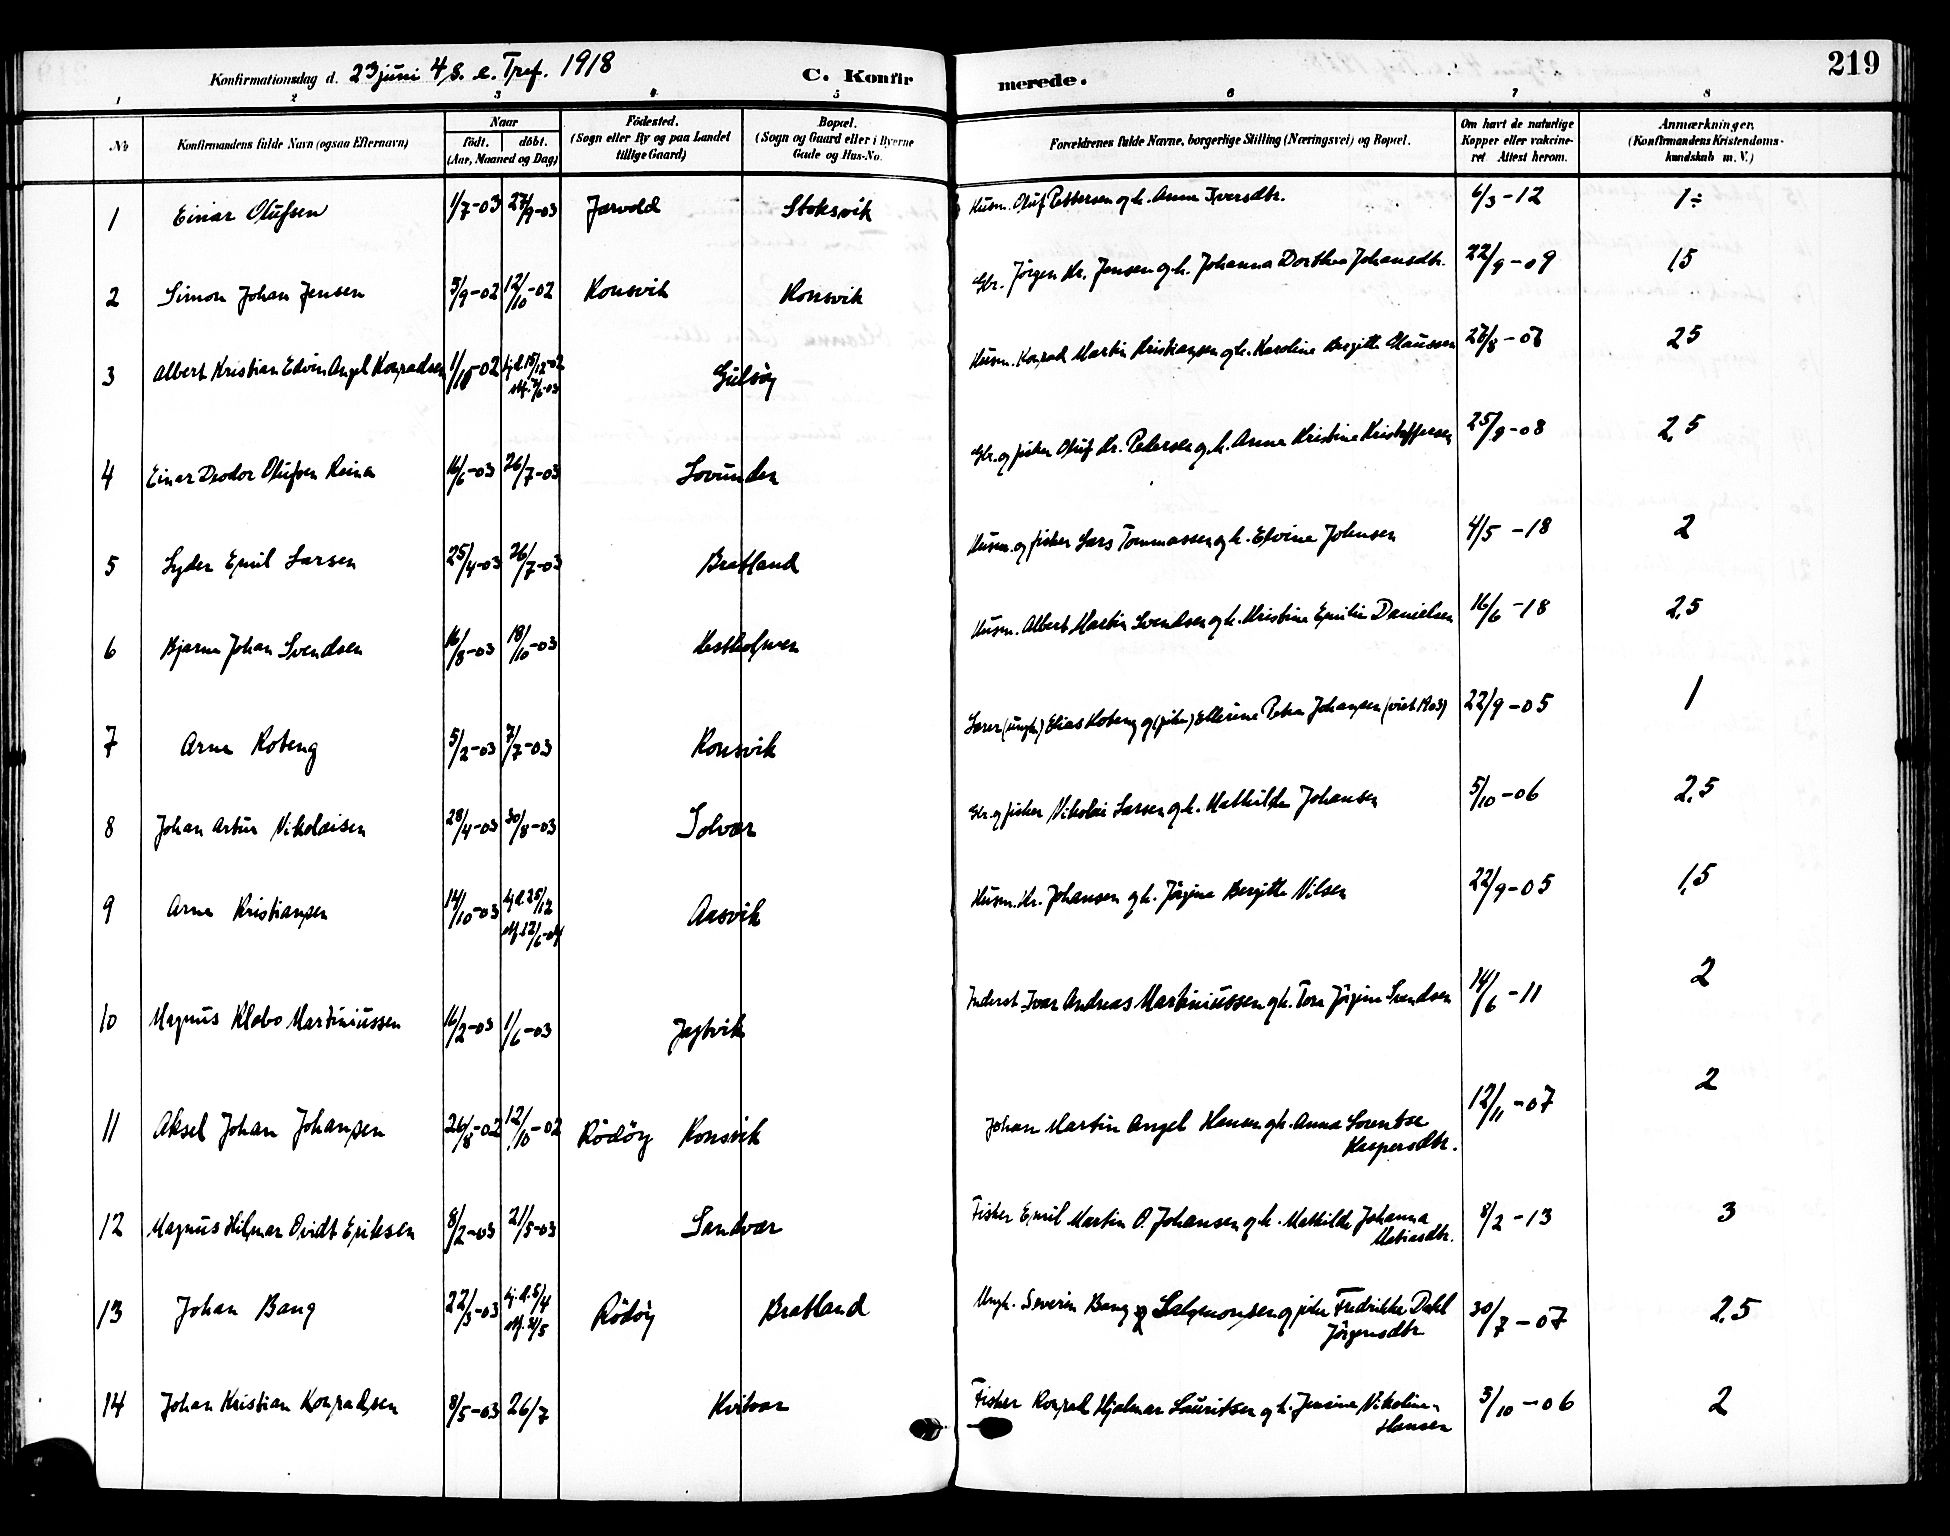 219
Konfirmationsdag d. 23 juni 4 S. e. Tref. 1918 C. Konfirmerede.
1 2 3 4 5 6 7 8
No Konfirmandens fulde Navn (ogsaa Efternavn) Naar født. døbt. (Aar, Maaned og Dag) Fødested. (Sogn eller By og paa Landet tillige Gaard) Bopæl. (Sogn og Gaard eller i Byerne Gade og Hus-No. Forældrenes fulde Navne, borgerlige Stilling (Næringsvei) og Bopæl. Om havt de naturlige Kopper eller vakcineret Attest herom. Anmærkninger. (Konfirmandens Kristendomskundskab m. V.)
1 Einar Olufsen 1/7-03 27/9-03 Jarvold Stoksvik Husm. Oluf Pettersen og h. Anne Iversdtr. 6/3-12 1÷
2 Simon Johan Jensen 5/9-02 12/10-02 Konsvik Konsvik Gbr. Jørgen Kr. Jensen og h. Johanna Dorthea Johansdtr. 22/9-09 15
3 Albert Kristian Edvin Angel Konradsen 1/10-02 Gulsøy Husm. Konrad Martin Kristiansen og h. Karoline Birgitte Clausen 25
4 Einar Deodor Olufsen Reina 16/6-03 26/7-03 Lovunden Gbr. og fisker Oluf Kr. Pedersen og h. Anne Kristine Kristoffersen 25/9-08 2,5
5 Lyder Emil Larsen 25/4-03 26/7-03 Bratland Husm. og fisker Lars Tommassen og h. Elvine Johnsen 4/5-18 2
6 Bjarne Johan Svendsen 16/8-03 18/10-03 Hestholmen Husm. Albert Martin Svendsen og h. Kristine Emilie Danielsen 16/6-18 2,5
7 Arne Koteng 5/2-03 7/7-03 Konsvik Lærer (ungk.) Elias Koteng og (pike) Ellerine Petra Johansen (viet 1903) 22/9-05 1
8 Johan Artur Nikolaisen 28/4-03 30/8-03 Solvær Gbr. og fisker Nikolai Larsen og h. Mathilde Johansen 5/10-06 2,5
9 Arne Kristiansen 14/10-03 hj.d. 25/12 Aasvik Husm. Kr. Johansen og h. Jørgine Bergitte Nilsen 22/9-05 1,5
10 Magnus Klæbo Martiniussen 16/2-03 1/6-03 Jagtvik Inderst Ivar Andreas Martiniussen og h. Tora Jørgine Svendsen 14/6-11 2
11 Aksel Johan Johansen 26/8-02 12/10-02 Rödöy Konsvik Johan Martin Angel Hansen og h. Anna Lorentse
Kaspersdtr. 12/11-07 2
12 Magnus Hilmar Ovidt Eriksen 8/2-03 21/5-03 Sandvær Fisker Emil Martin O. Johansen og h. Mathilde Johanna
Matiasdtr. 8/2-13 3
13 Johan Bang 22/3-03 hj.d. 5/4 Rödöy Bratland Ungk. Severin Bang Salamonsen og pike Fredrikke Dahl
Jørgensdtr 30/7-07 2,5
14 Johan Kristian Konradsen 8/5-03 26/7 Kvitvær Fisker Konrad Hjalmar Lauritsen og h. Jensine Nikoline
Hansen 5/10-06 2